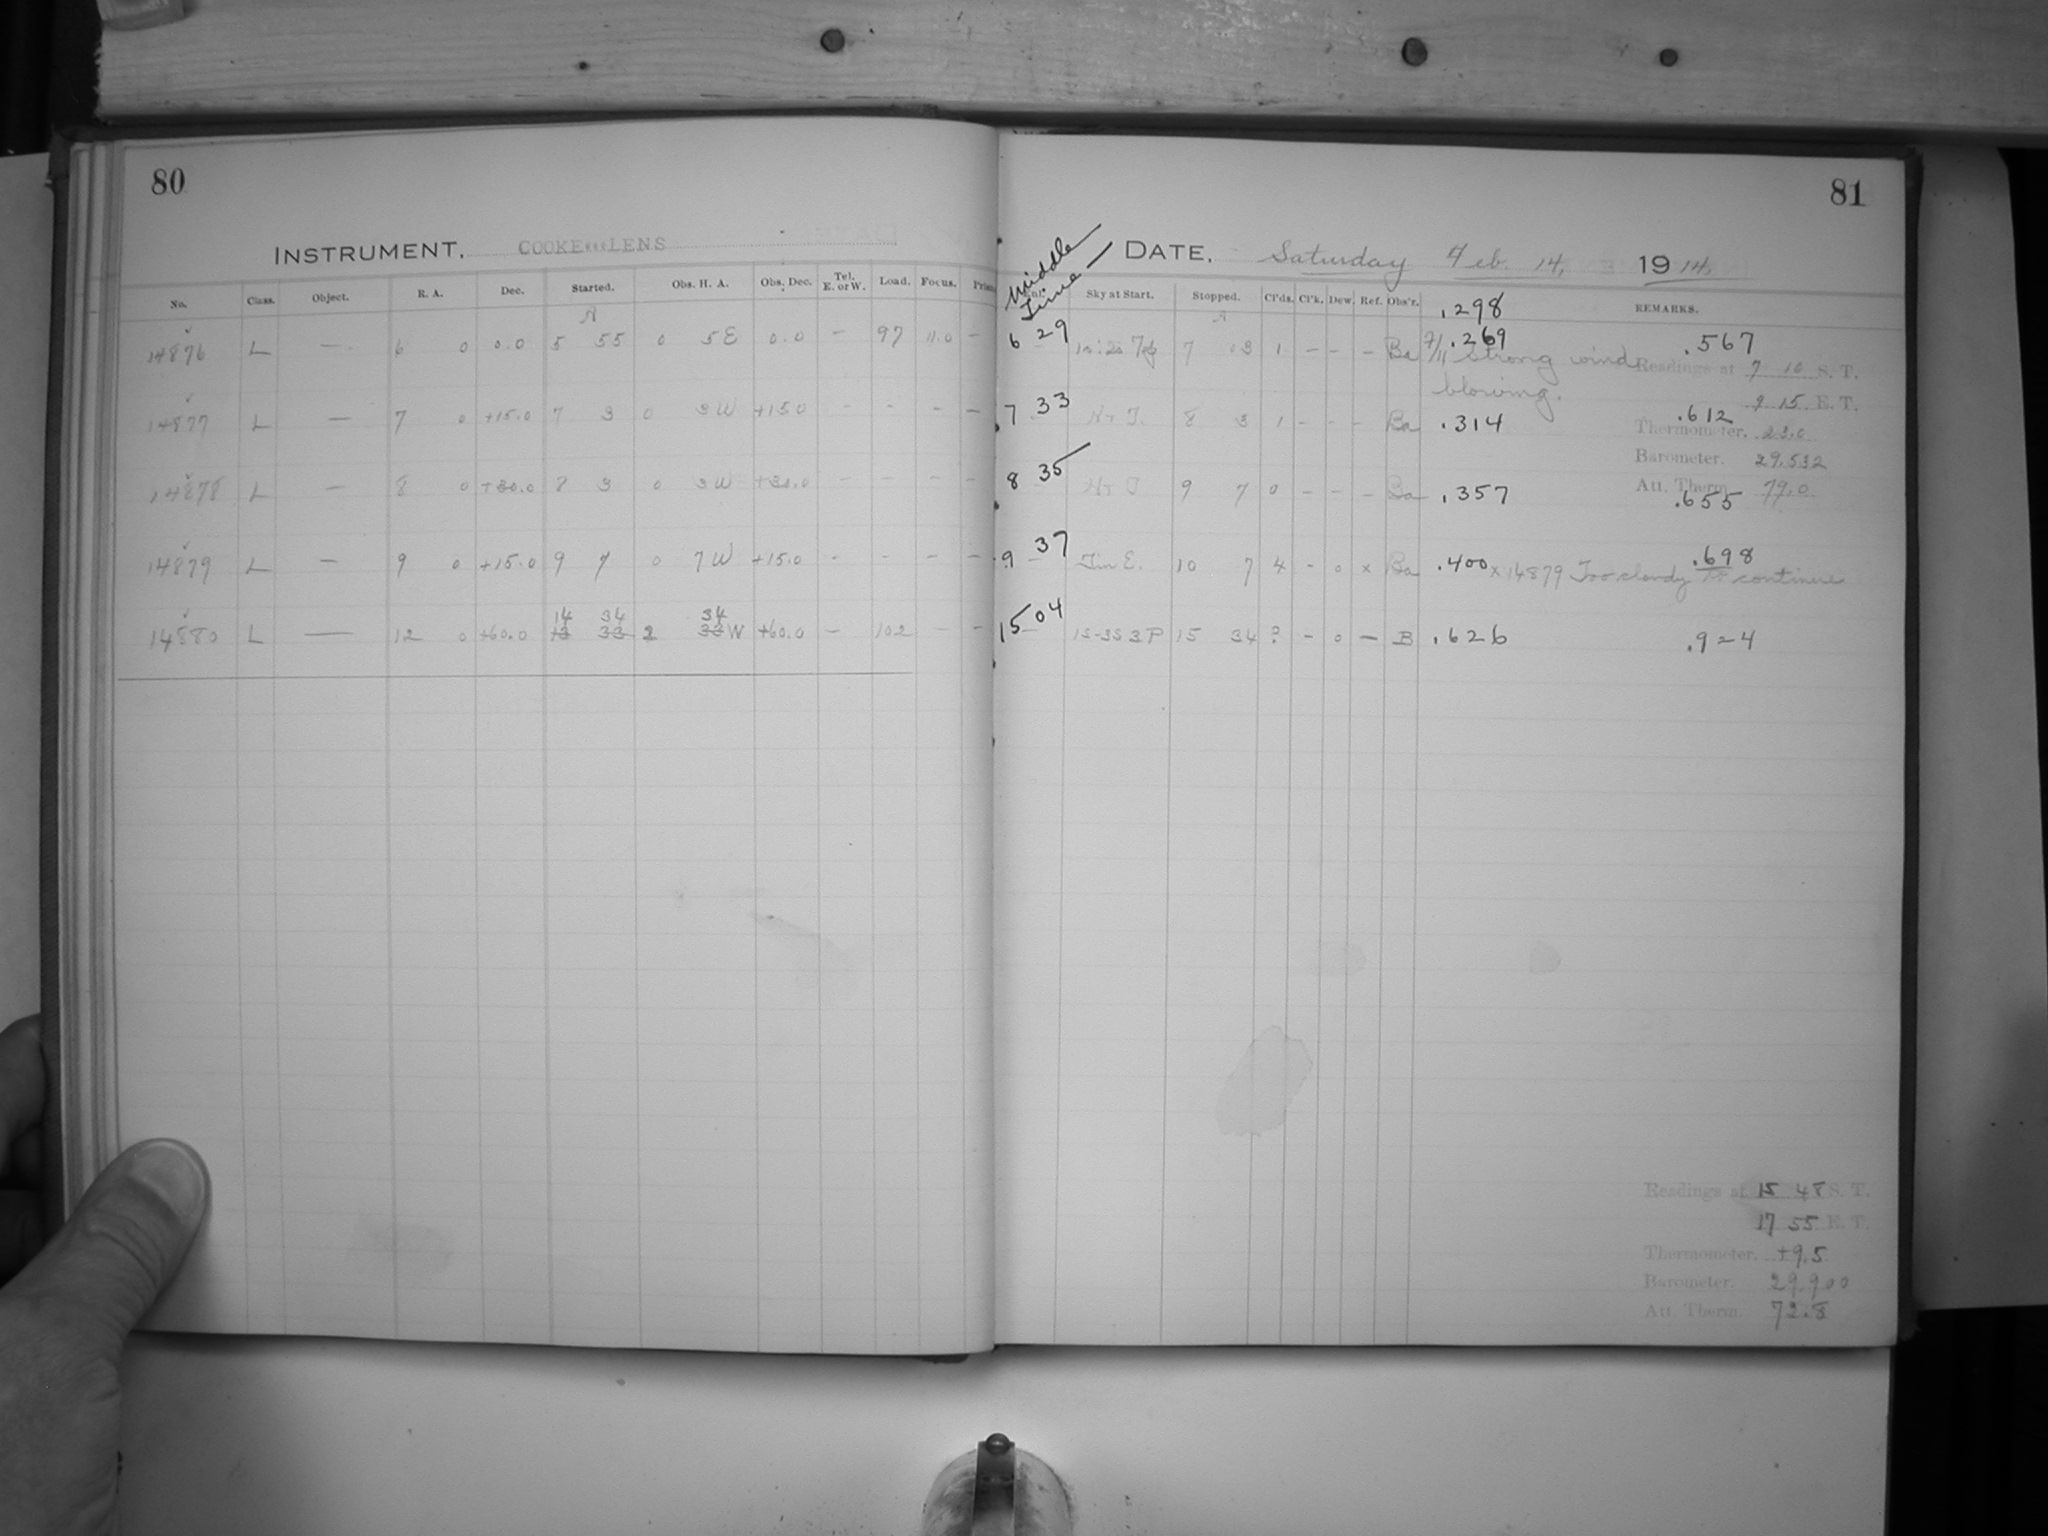 80
INSTRUMENT, COOKE LENS
No. Class. Object. R. A. Dec. Started. Obs. H. A. Obs. Dec. Tel. E. or W. Load. Focus.
14876 L — 6 0 0.0 5 55 0 5E 0.0 — 97 11.0 —
14877 L — 7 0 +15.0 7 3 0 3W +15.0 - - - —
14878 L — 8 0 +30.0 8 3 0 3W +30.0 - - - —
14879 L — 9 0 +15.0 9 7 0 7W +15.0 - - - —
14 34 34
14880 L — 12 0 +60.0 13 33 2 33W +60.0 — 102 - -
81
Middle Time
DATE, Saturday Feb. 14, 1914,
Sky at Start. Stopped. Cl'ds. Cl'k. Dew. Ref. Obs'r. REMARKS.
.298
6 29 7 03 1 - - - Ba .269 .567
Strong wind
blowing.
Readings at 7 10 S. T.
9 15 E. T.
7 33 H+T. 8 3 1 - - - Ba .314 .612
Thermometer. 23.0
Barometer. 29.532
Att. Therm. 79.0
8 35 H+T 9 7 0 - - - Ba .357 .655
9 37 Tin E. 10 7 4 - 0 x Ba .400 .698
x 14879 Too cloudy to continue
15 04 15-35 3P 15 34 ? - 0 — B .626 .924
Readings at 15 48 S. T.
17 55 E. T.
Thermometer. +9.5
Barometer. 29.900
Att. Therm. 72.8